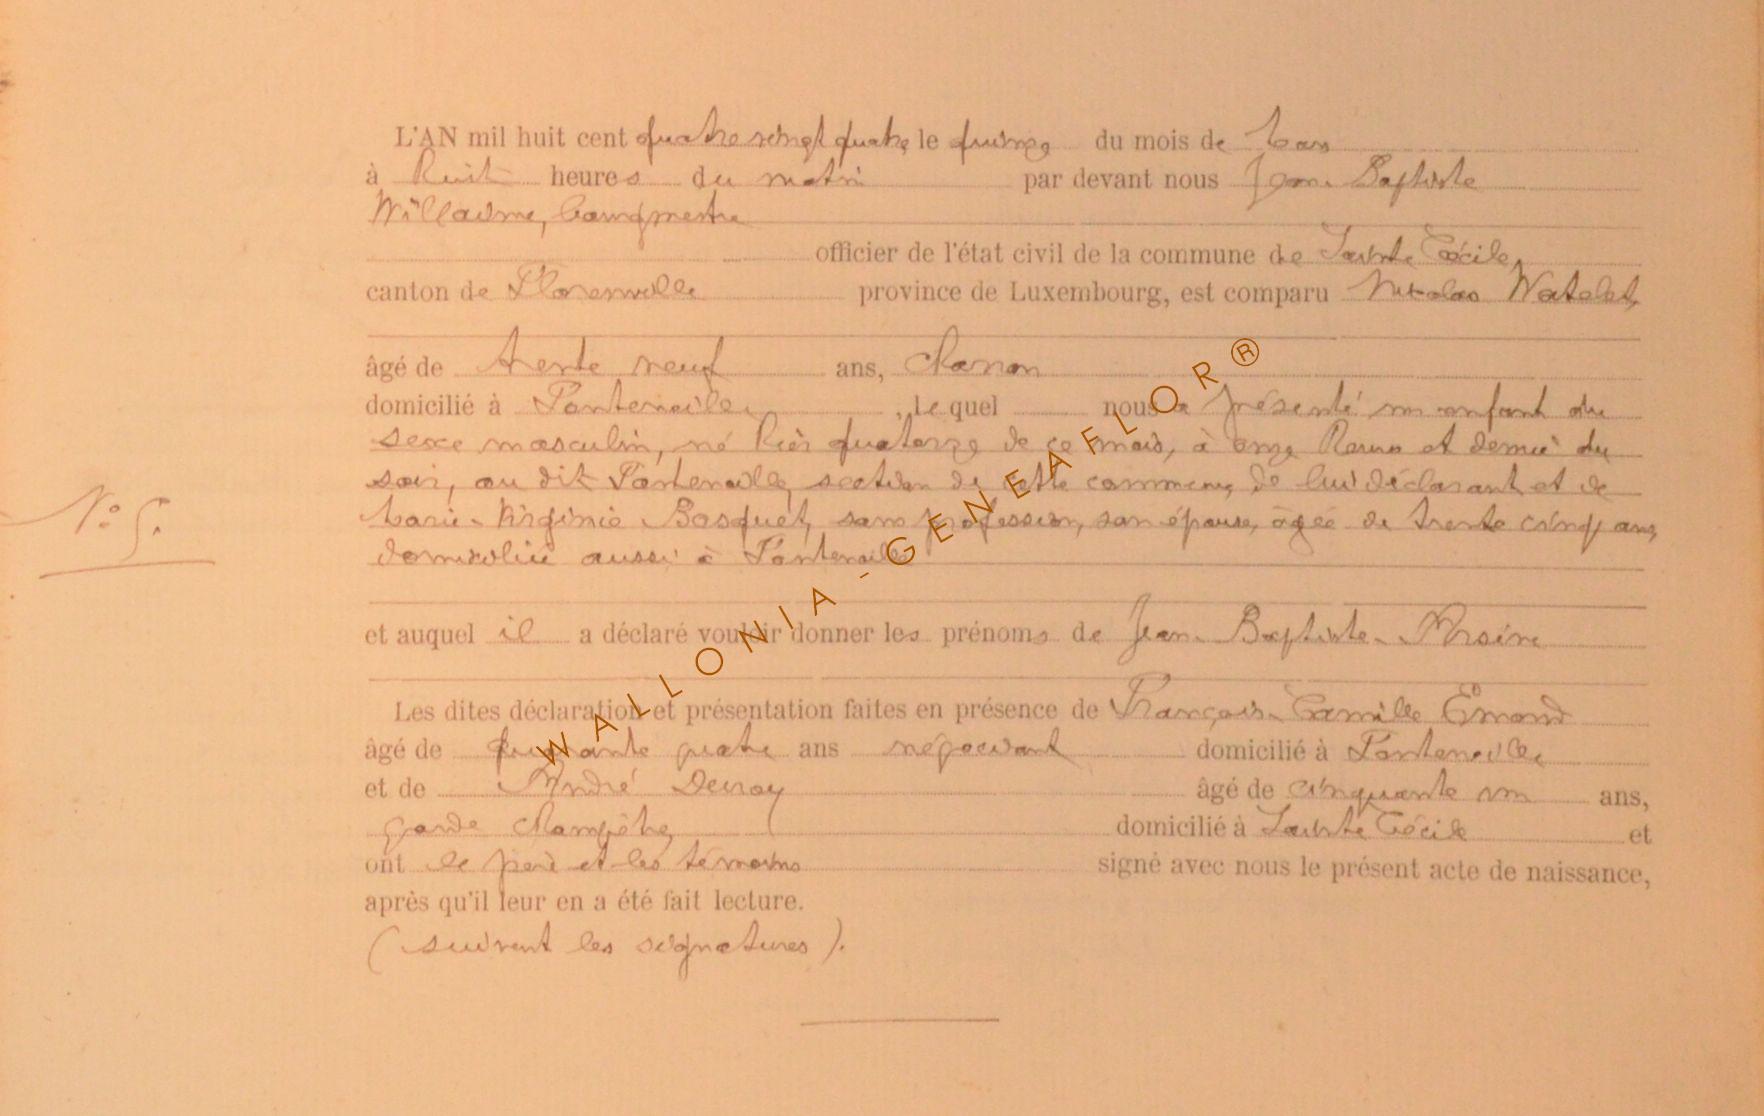 L'AN mil huit cent quatre vingt quatre le quinze du mois de Mars
à huit heures du matin par devant nous Jean Baptiste
Willaime, bourgmestre
officier de l'état civil de la commune de Sainte Cécile,
canton de Florenville province de Luxembourg, est comparu Nicolas Watelet,
âgé de trente neuf ans, charron
domicilié à Fontenoille, lequel nous a présenté un enfant du
sexe masculin, né hier quatorze de ce mois, à onze heures et demie du
soir, au dit Fontenoille, section de cette commune, de lui déclarant et de
Marie-Virginie Bosquet, sans profession, son épouse, âgée de trente cinq ans,
domiciliée aussi à Fontenoille
N° 5.
et auquel il a déclaré vouloir donner les prénoms de Jean-Baptiste-Arsène
Les dites déclaration et présentation faites en présence de François-Camille Emond
âgé de quarante quatre ans négociant domicilié à Fontenoille
et de André Devroy âgé de cinquante un ans,
garde champêtre, domicilié à Sainte Cécile et
ont le père et les témoins signé avec nous le présent acte de naissance,
après qu'il leur en a été fait lecture.
(suivent les signatures).
WALLONIA-GENEAFLOR®